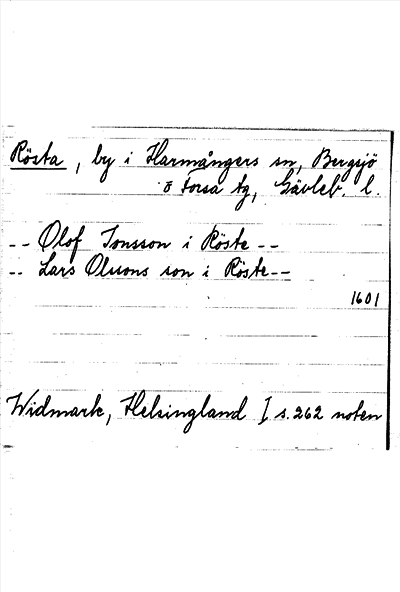 Rösta, by i Harmångers sn, Bergsjö
o Forsa tg, Gävleb. l.
-- Olof Jonsson i Röste --
-- Lars Olssons son i Röste --
1601
Widmark, Helsingland I s. 262 noten